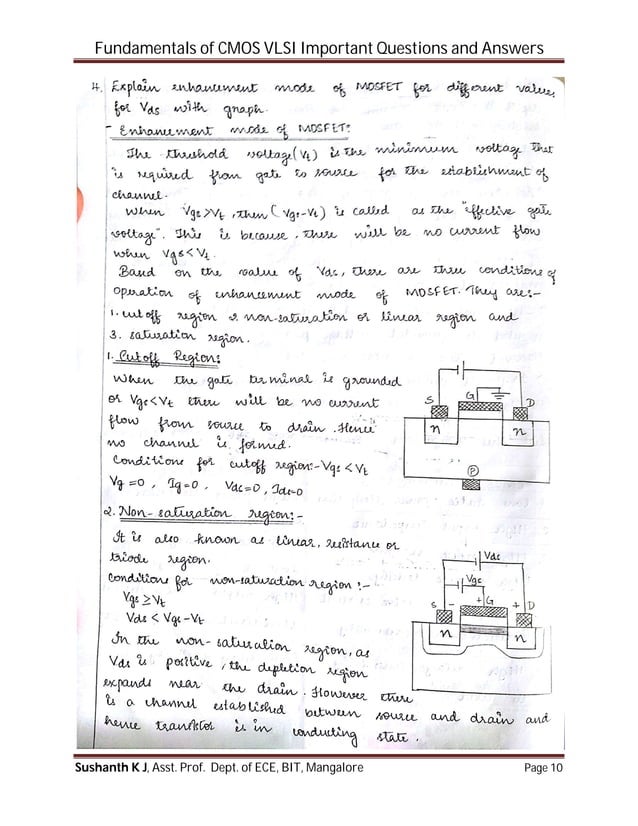 Fundamentals of CMOS VLSI Important Questions and Answers
4. Explain enhancement mode of MOSFET for different values
for Vds with graph.
- Enhancement mode of MOSFET:
The threshold voltage (Vt) is the minimum voltage that
is required from gate to source for the establishment of
channel.
When Vgs>Vt, then (Vgs-Vt) is called as the "effective gate
voltage". This is because, there will be no current flow
when Vgs<Vt.
Based on the value of Vds, there are three conditions of
operation of enhancement mode of MOSFET. They are:-
1. cut off region 2 non-saturation or linear region and
3. saturation region.
1. Cutoff Region:
When the gate terminal is grounded
or Vgs<Vt there will be no current
flow from source to drain. Hence
no channel is formed.
Conditions for cutoff region:- Vgs<Vt
Vg=0, Ig=0, Vds=0, Ids=0
S G D
n n
P
2. Non-saturation region:-
It is also known as linear, resistance or
triode region.
Conditions for non-saturation region:-
Vgs ≥ Vt
Vds < Vgs-Vt
In the non-saturation region, as
Vds is positive, the depletion region
expands near the drain. However there
is a channel established between source and drain and
hence transistor is in conducting state.
Vds
Vgs
S - + G + D
n n
Sushanth K J, Asst. Prof. Dept. of ECE, BIT, Mangalore Page 10